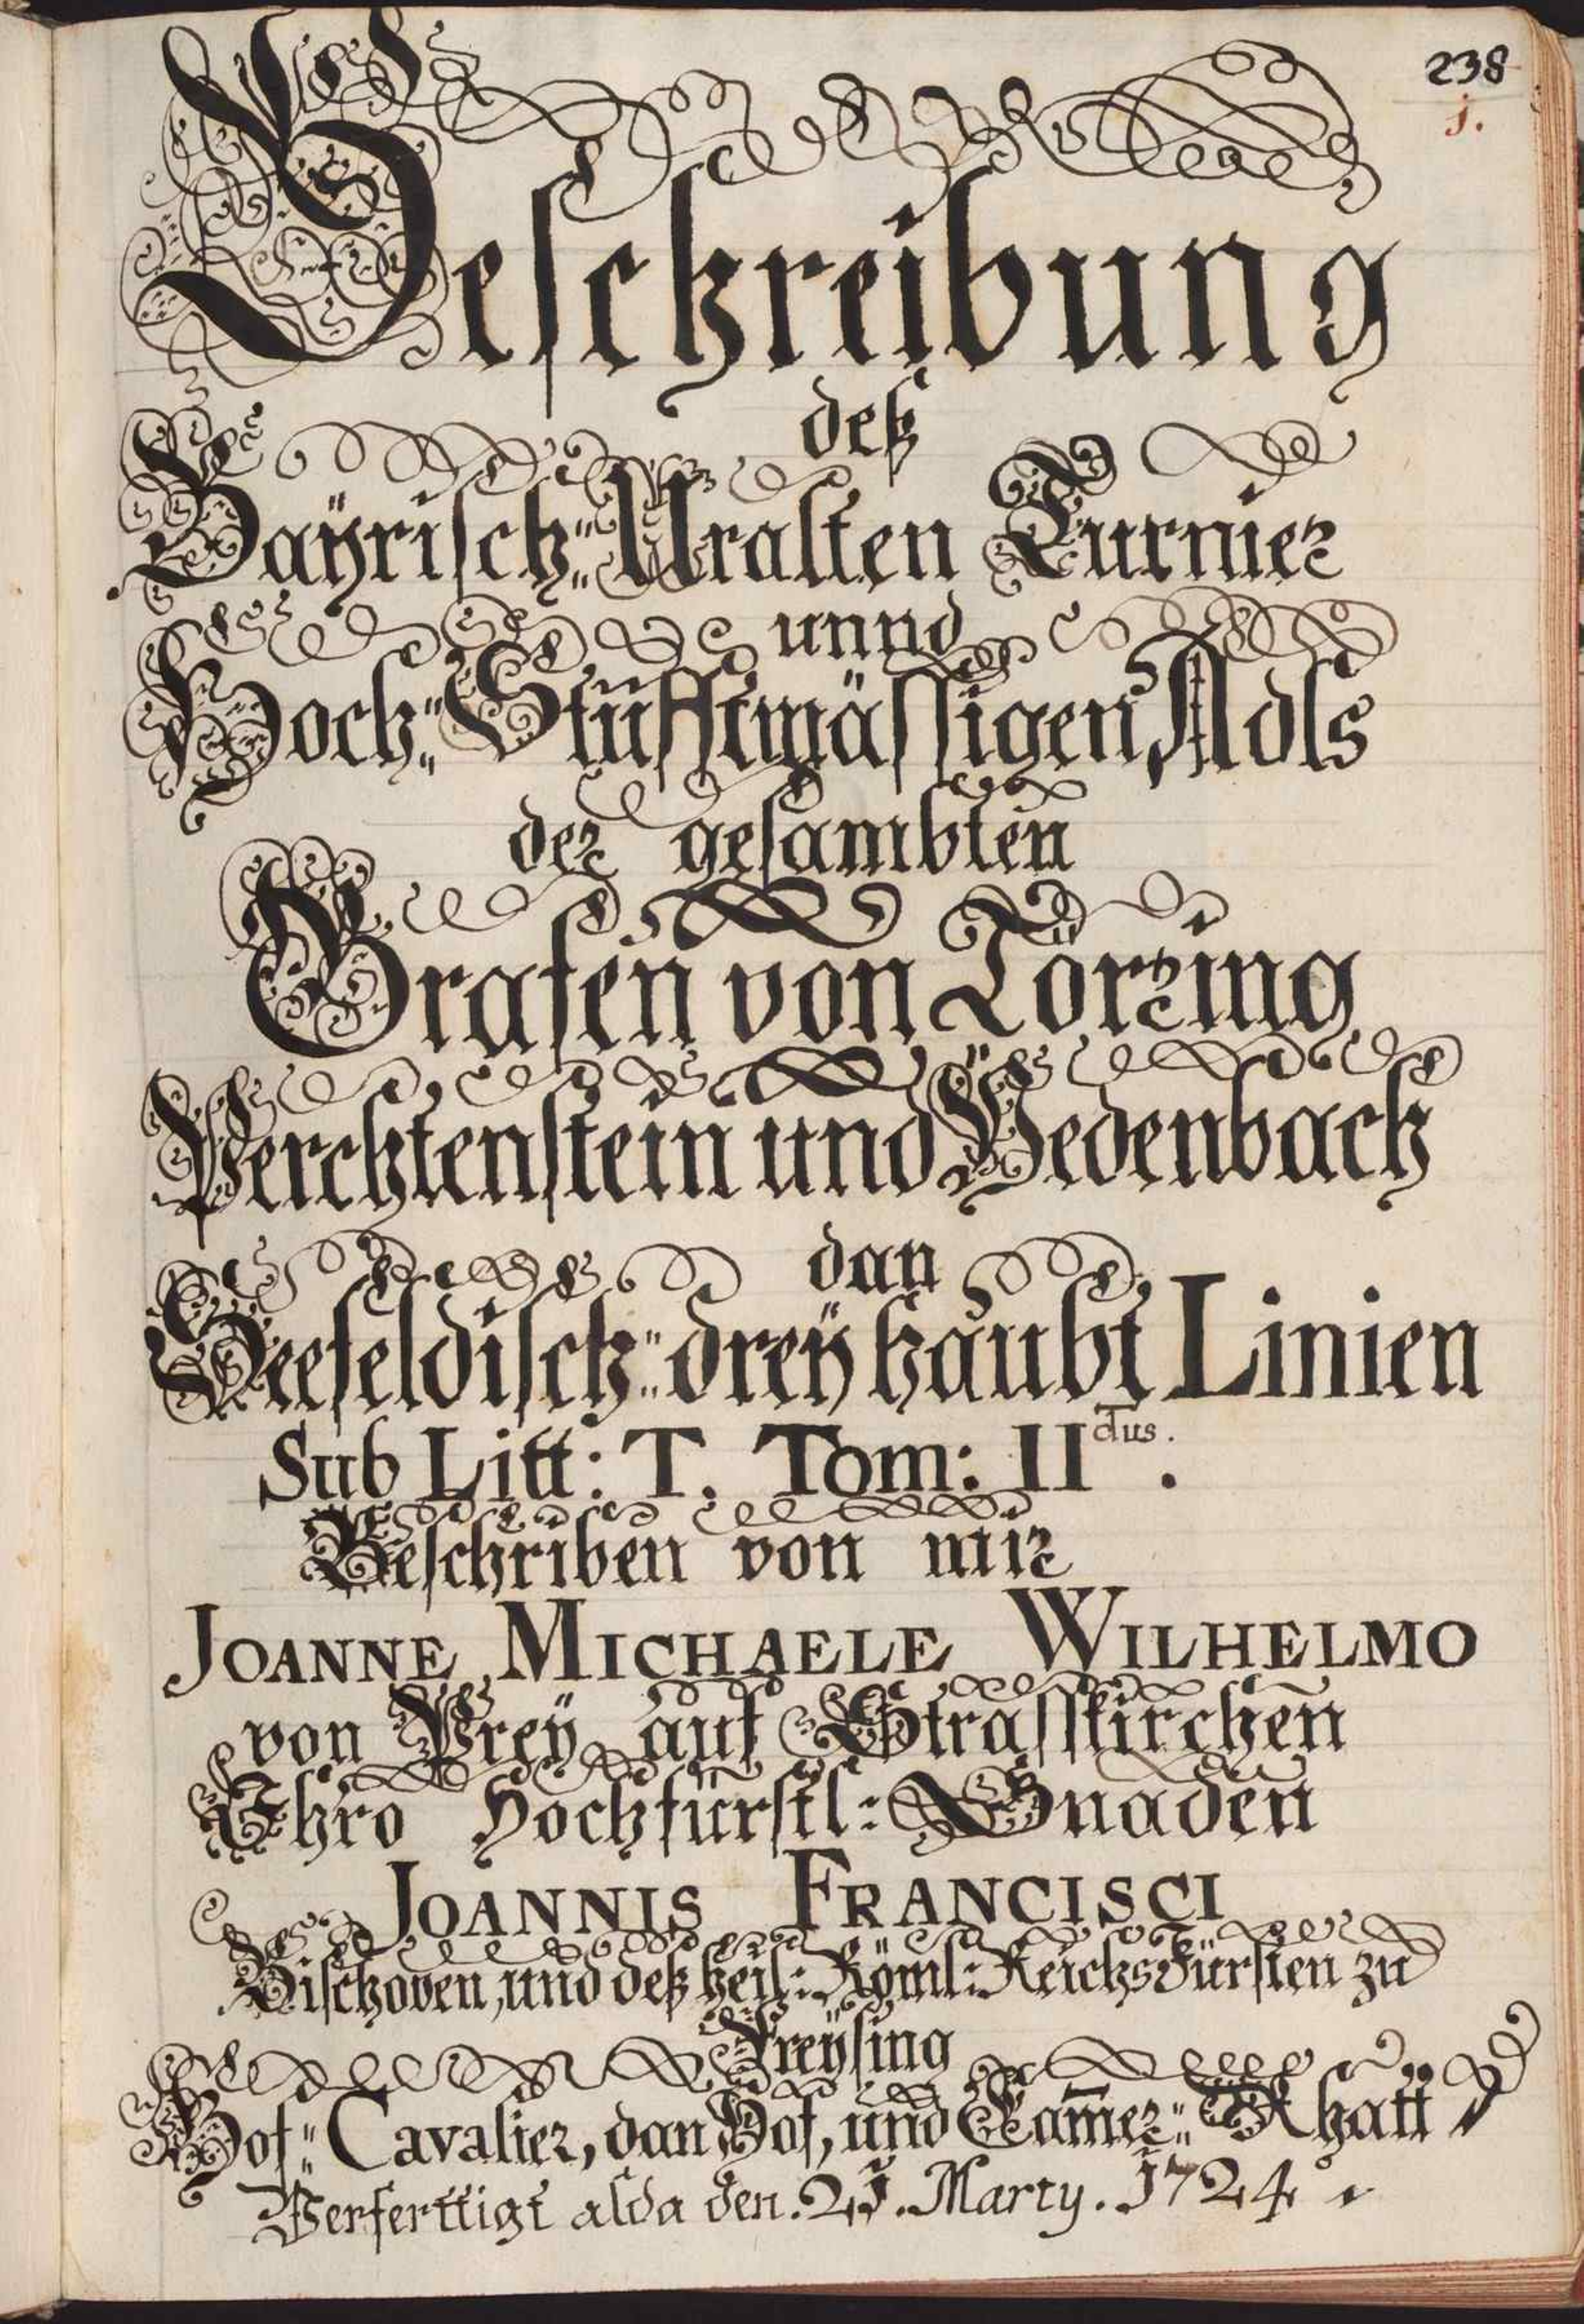 238
1.
Beschreibung
deß
Baÿrisch: Uralten Turnier
unnd
Hoch: Stüfftmässigen Adls
der gesambten
Grafen von Törring
Perchtenstein und Pedenbach
dan
Seefeldisch: dreÿ haubt Linien
Sub Litt: T. Tom: II dus.
Beschriben von mir
JOANNE MICHAELE WILHELMO
von Preÿ auf Strasskirchen
Ihro Hochfürstl: Gnaden
JOANNIS FRANCISCI
Bischoven, und deß heil: Röml: Reichs Fürsten zu
Freÿsing
Hof: Cavalier, dan Hof, und Cam̄er: Rhatt
Verferttigt alda den. 21. Marty. 1724